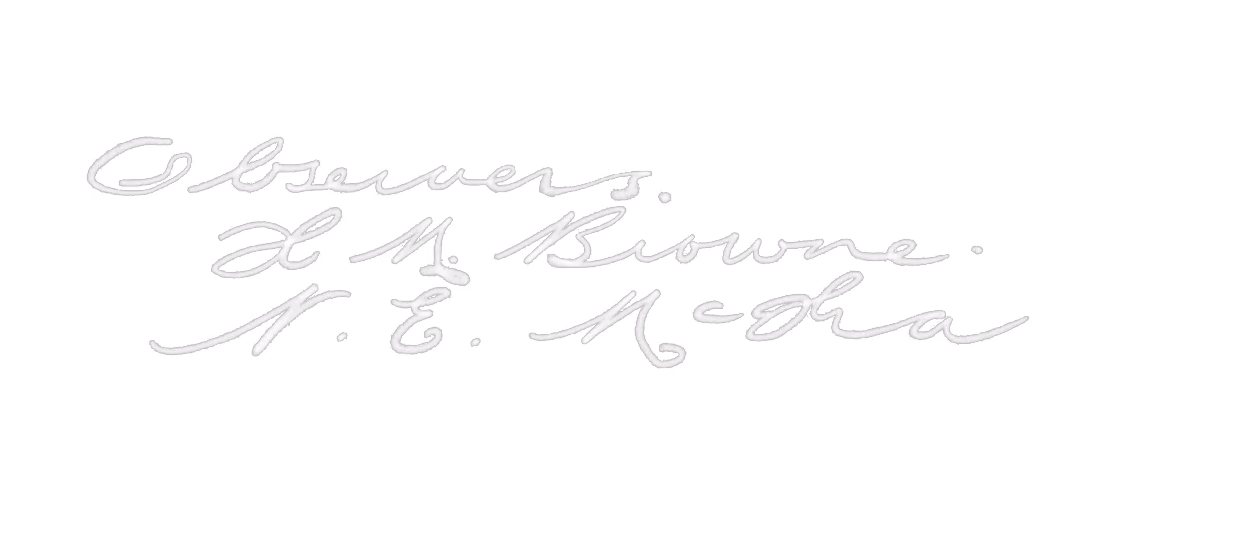 Observers.
H M. Browne.
N. E. McIndra